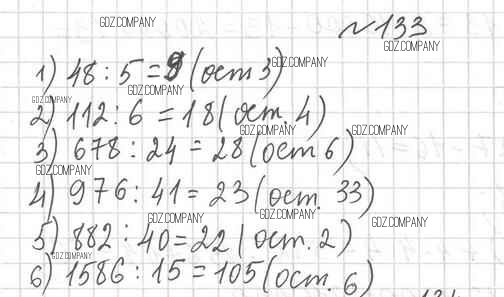 GDZ.COMPANY
№133
GDZ.COMPANY
1) 48 : 5 = 9 (ост 3)
GDZ.COMPANY
GDZ.COMPANY
GDZ.COMPANY
2) 112 : 6 = 18 (ост. 4)
GDZ.COMPANY
GDZ.COMPANY
3) 678 : 24 = 28 (ост 6)
GDZ.COMPANY
4) 976 : 41 = 23 (ост. 33)
GDZ.COMPANY
GDZ.COMPANY
GDZ.COMPANY
5) 882 : 40 = 22 (ост. 2)
GDZ.COMPANY
6) 1586 : 15 = 105 (ост. 6)